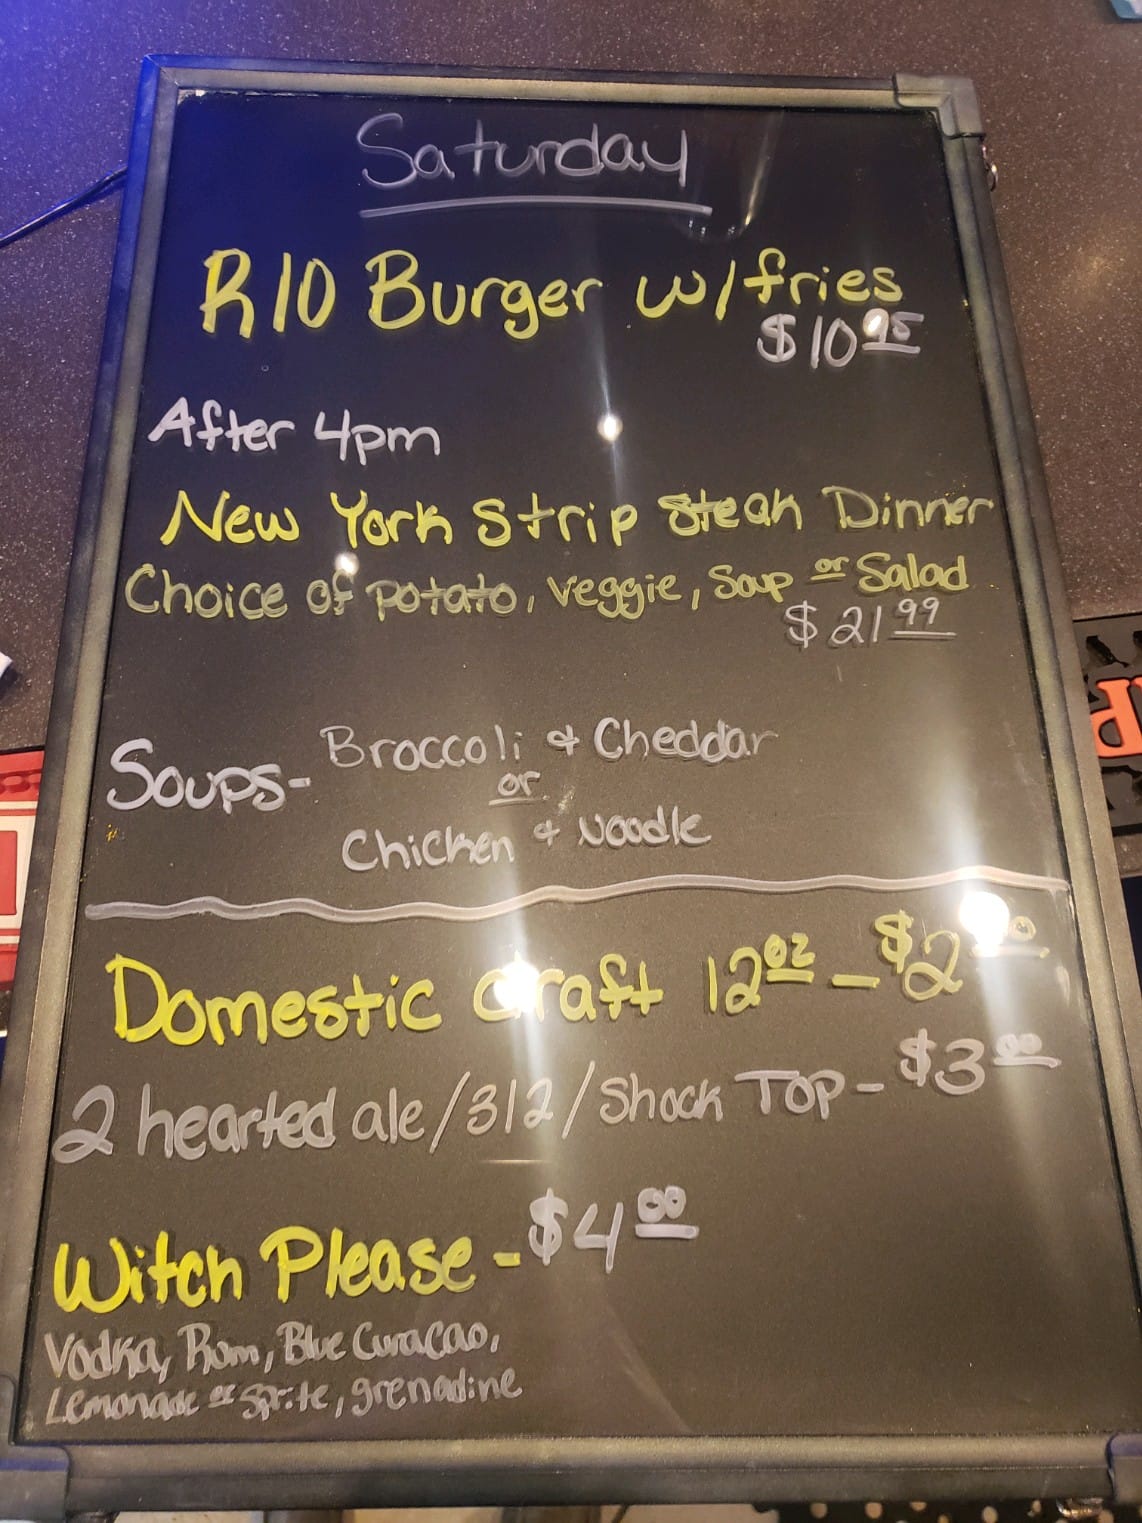 Saturday
R10 Burger w/fries
$10 95
After 4pm
New York Strip Steak Dinner
Choice of potato, veggie, Soup or Salad
$21 99
Soups- Broccoli & Cheddar
or
Chicken & Noodle
Domestic draft 12oz - $2
2 hearted ale/312/Shock Top - $3 00
Witch Please - $4 00
Vodka, Rum, Blue Curacao,
Lemonade or Sprite, grenadine